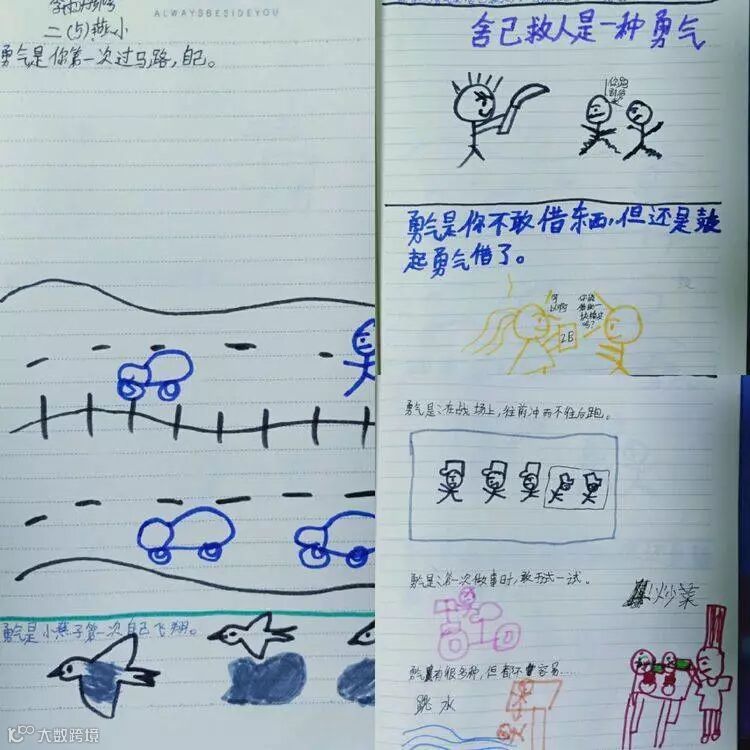 ALWAYSBESIDEYOU
二(5)燕小
勇气是你第一次过马路,自己。
勇气是小燕子第一次自己飞翔。
舍己救人是一种勇气
你跑
勇气是你不敢借东西,但还是鼓
起勇气借了。
可
以啊
你能
借我一
块橡皮
吗?
2B
勇气是:在战场上,往前冲而不往后跑。
勇气是:第一次做事时,敢于试一试。
炒菜
勇气有很多种,但都不容易……
跳水
大数跨境